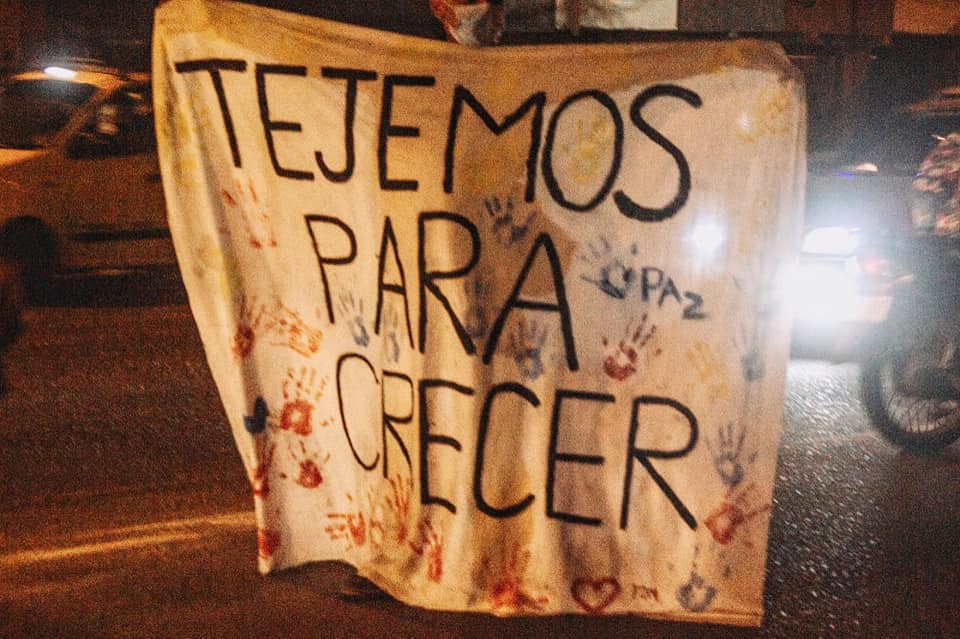 TEJEMOS
PARA
PAZ
CRECER